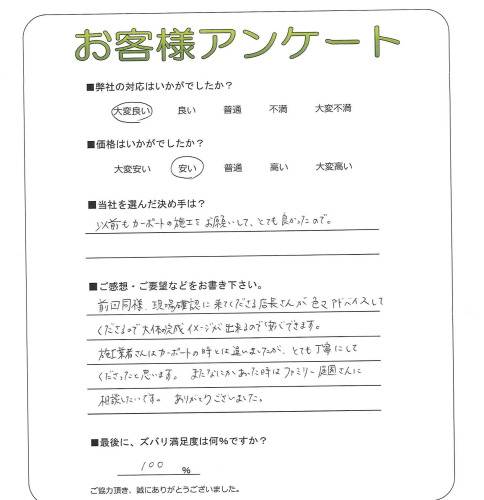 お客様アンケート
■弊社の対応はいかがでしたか？
大変良い 良い 普通 不満 大変不満
■価格はいかがでしたか？
大変安い 安い 普通 高い 大変高い
■当社を選んだ決め手は？
以前もカーポートの施工をお願いして、とても良かったので。
■ご感想・ご要望などをお書き下さい。
前回同様、現場確認に来てくださる店長さんが色々アドバイスして
くださるので大体完成イメージが出来るので安心できます。
施工業者さんはカーポートの時とは違いましたが、とても丁寧にして
くださったと思います。 またなにかあった時はファミリー庭園さんに
相談したいです。 ありがとうございました。
■最後に、ズバリ満足度は何%ですか？
100 %
ご協力頂き、誠にありがとうございました。